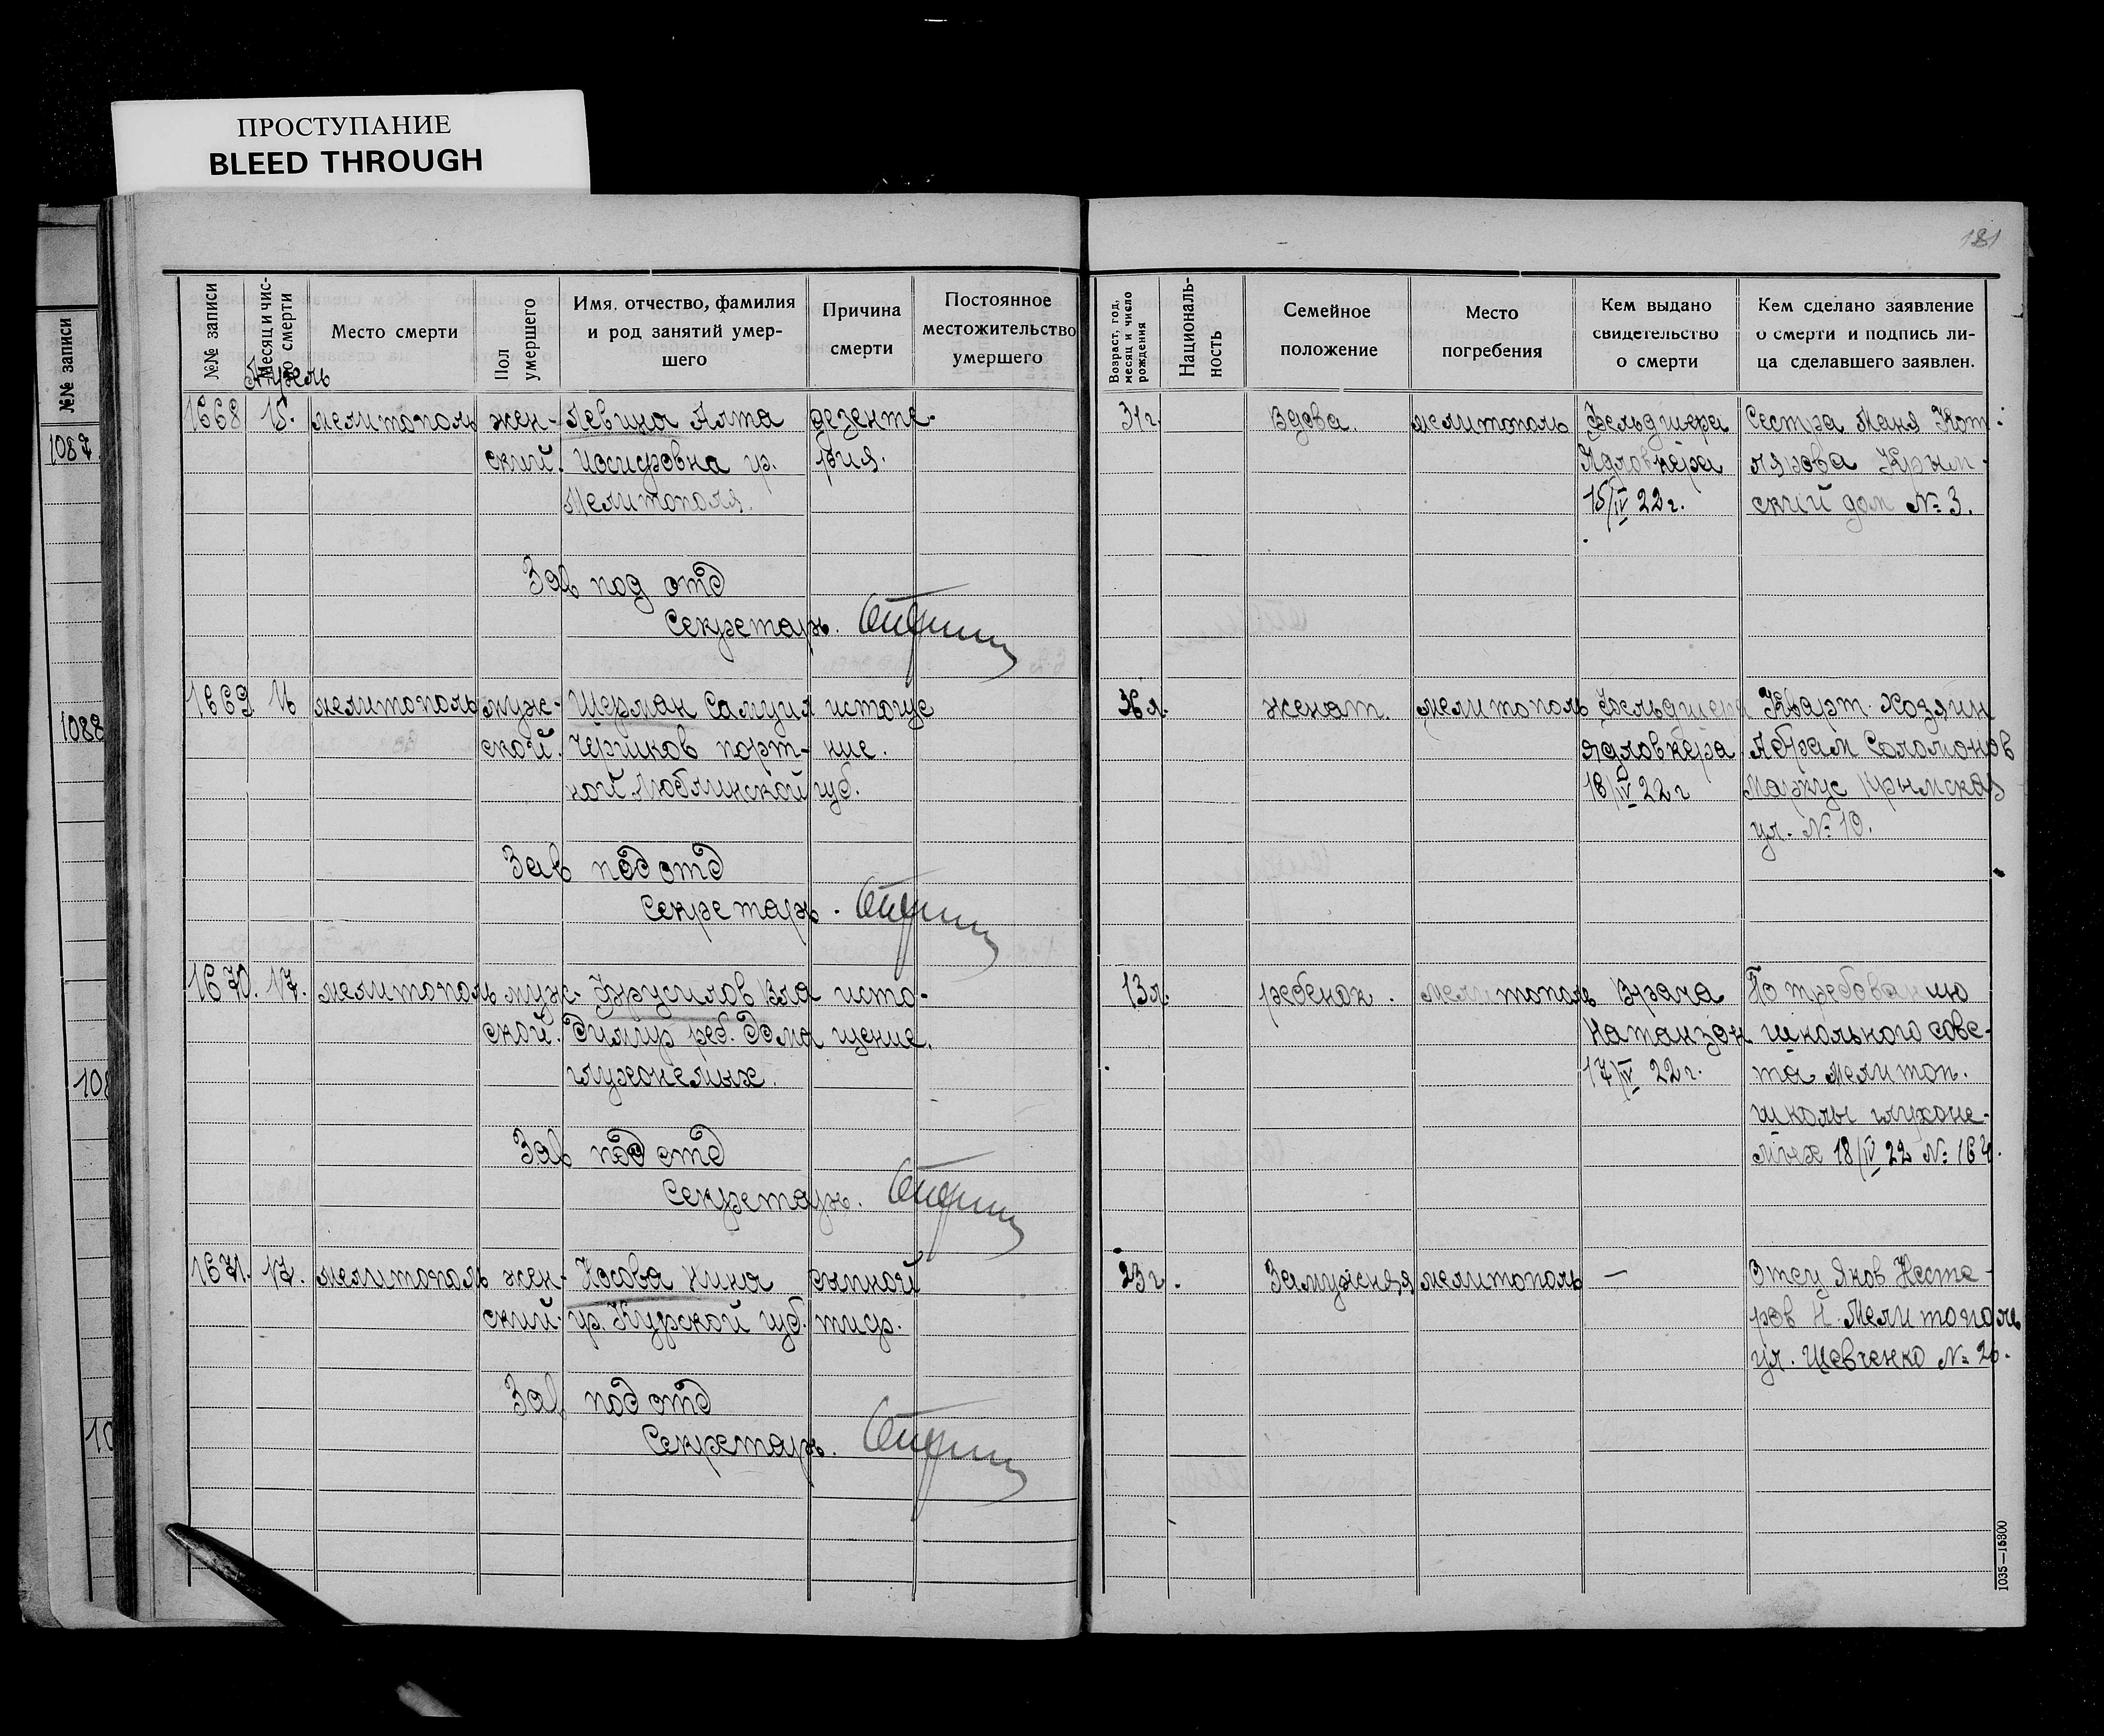 ПРОСТУПАНИЕ
BLEED THROUGH
181
№№ записи
№№ записи
Месяц и чис-
ло смерти
Место смерти
Пол
умершего
Имя, отчество, фамилия
и род занятий умер-
шего
Причина
смерти
Постоянное
местожительство
умершего
Возраст, год,
месяц и число
рождения
Националь-
ность
Семейное
положение
Место
погребения
Кем выдано
свидетельство
о смерти
Кем сделано заявление
о смерти и подпись ли-
ца сделавшего заявлен.
Апрель
1087.
1668 15. мелитополь жен- Левина Алта дезенте- 31г. Вдова. мелитополь Фельдшера Сестра Маня Кот-
ский. Иосифовна гр. рия. Ядловкера лярова Крым-
Мелитополя. 15/IV 22г. ский дом № 3.
Зав под отд
Секретарь.
1088
1669. 16 мелитополь муж- Шерман Самуил истоще 36 л. женат. мелитополь Фельдшера Кварт. Хозяин
ской. Чериков порт- ние. Ядловкера Абрам Соломонов
ной Люблинской губ. 18/IV 22г Маркус Крымская
ул. № 10.
Зав под отд
Секретарь.
1670. 17. мелитополь муж- Фрусилов Вла исто- 13л. ребенок. мелитополь Врача По требованию
ской. димир реб. дома щение. Натанзон школьного сове-
глухонемых. 17/IV 22г. та Мелитоп.
108
школы глухоне-
мых 18/IV 22 № 164.
Зав под отд
Секретарь.
1671. 17. мелитополь жен- Носова Нина сыпной 23г. Замужняя мелитополь — Отец Яков Несте-
ский. гр. Курской губ. тиф. ров Н. Мелитополь
ул. Шевченко № 26.
Зав под отд
10
Секретарь.
1035—15300